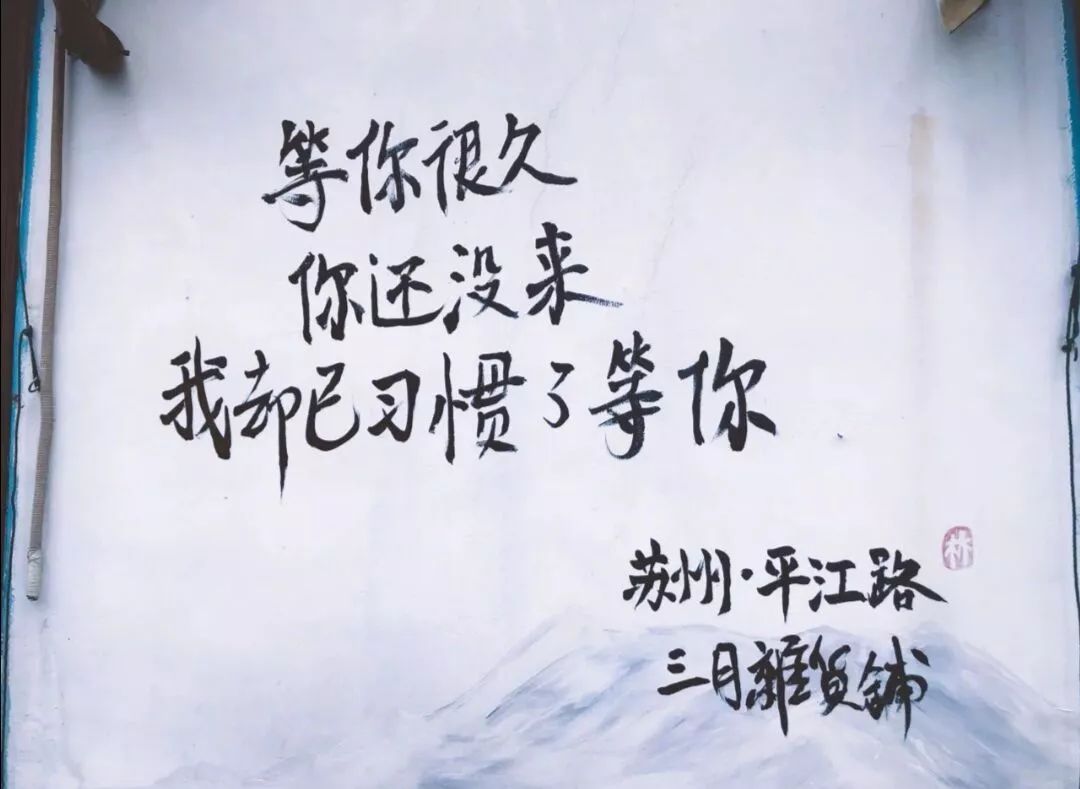 等你很久
你还没来
我却已习惯了等你
苏州·平江路
林
三月雜货鋪